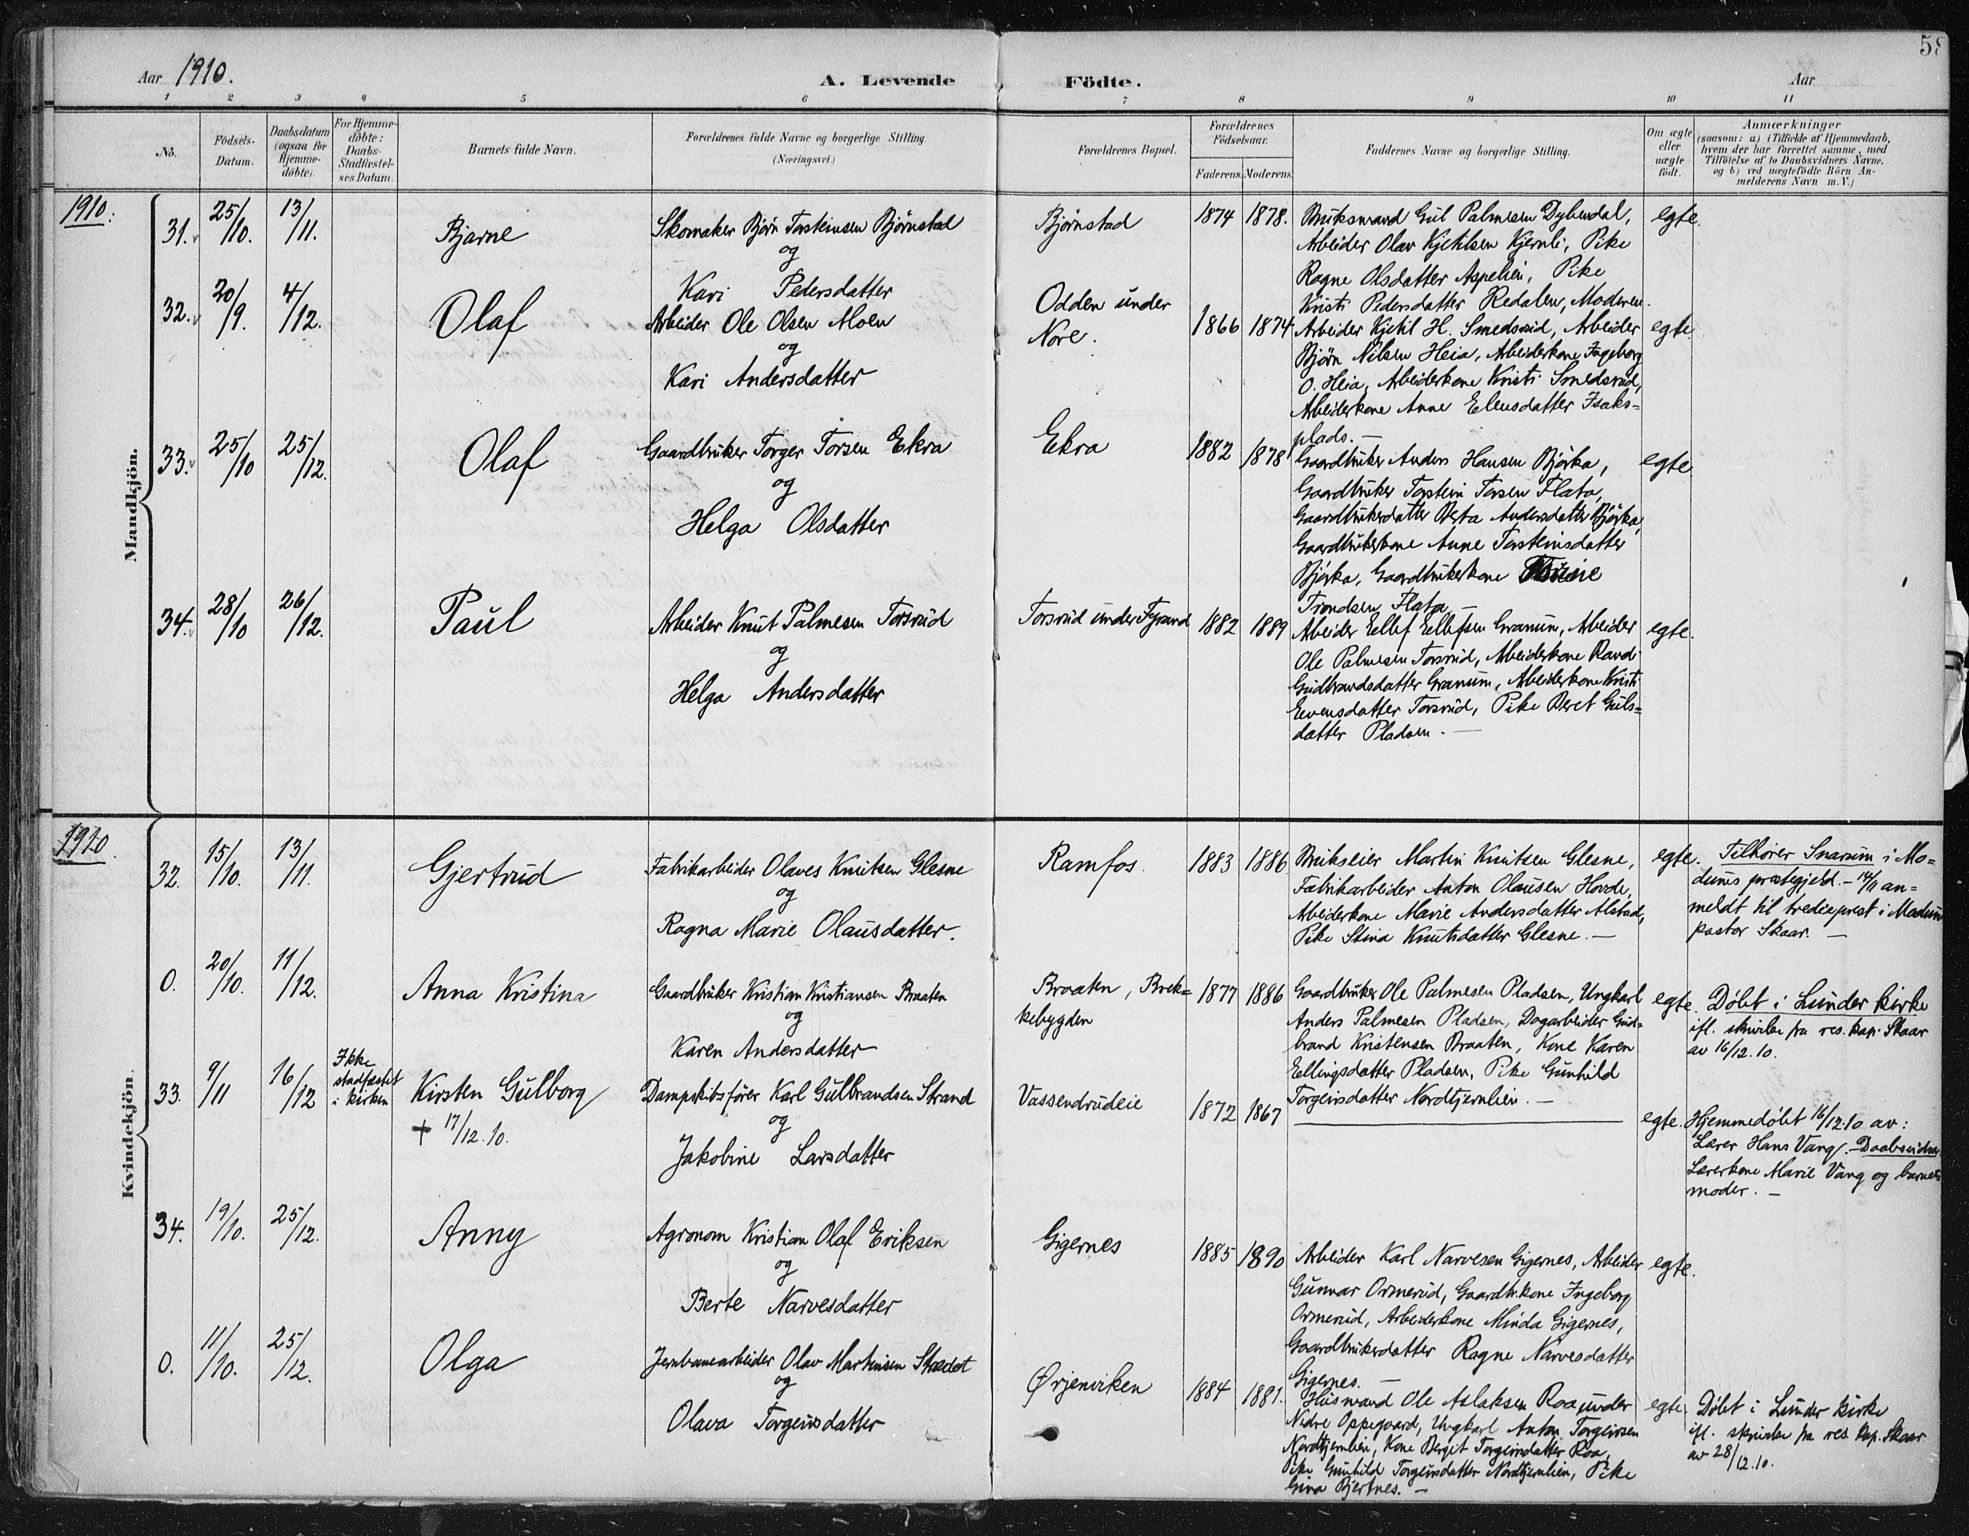 58
Aar 1910.
A. Levende Födte.
Aar
1 2 3 4 5 6 7 8 9 10 11
No.
Födsels-Datum.
Daabsdatum (ogsaa for Hjemme-döbte).
For Hjemme-döbte: Daabs-Stadfæstel-ses Datum.
Barnets fulde Navn.
Forældrenes fulde Navne og borgerlige Stilling. (Næringsvei.)
Forældrenes Bopæl.
Forældrenes Födselsaar.
Faderens. Moderens.
Faddernes Navne og borgerlige Stilling.
Om ægte eller uægte födt.
Anmærkninger
(saasom: a) i Tilfælde af Hjemmedaab,
hvem der har forrettet samme, med
Tilföielse af to Daabsvidners Navne.
og b) ved uægtefödte Börn An-
melderens Navn m. V.)
1910.
Mandkjön.
31. 25/10. 13/11.
Bjarne
Skomaker Bjørn Torsteinsen Bjørnstad
og
Kari Pedersdatter
Bjørnstad
1874 1878.
Bruksmand Gul Palmesen Dybendal,
Arbeider Olav Kjetilsen Kjernli, Pike
Ragne Olsdatter Aspelien, Pike
Kristi Pedersdatter Redalen, Moderen.
egte.
32. 20/9. 4/12.
Olaf
Arbeider Ole Olsen Moen
og
Kari Andersdatter
Odden under
Nore.
1866 1874
Arbeider Kjetil H. Smedsrud, Arbeider
Bjørn Nilsen Heia, Arbeiderkone Ingeborg
O. Heia, Arbeiderkone Kristi Smedsrud,
Arbeiderkone Anne Elensdatter Isaks-
plads. —
egte
33. 25/10 25/12.
Olaf
Gaardbruker Torger Torsen Ekra
og
Helga Olsdatter
Ekra
1882 1878
Gaardbruker Anders Hansen Bjørka,
Gaardbruker Torstein Torsen Flata,
Gaardbrukerdatter Berta Andersdatter Bjørka,
Gaardbrukerkone Anne Torsteinsdatter
Bjørka, Gaardbrukerkone
Trondsen Flata
egte
34. 28/10 26/12.
Paul
Arbeider Knut Palmesen Torsrud
og
Helga Andersdatter
Torsrud under
1882 1889
Arbeider Ellef Ellefsen Granum, Arbeider
Ole Palmesen Torsrud, Arbeiderkone Randi
Gudbrandsdatter Granum, Arbeiderkone Kristi
Evensdatter Torsrud, Pike Beret Guls-
datter Pladsen. —
egte.
1910.
Kvindekjön.
32. 15/10. 13/11.
Gjertrud
Fabrikarbeider Olaves Knutsen Glesne
og
Ragna Marie Olausdatter.
Ramfos.
1883 1886
Brukseier Martin Knutsen Glesne,
Fabrikarbeider Anton Olausen Hovde,
Arbeiderkone Marie Andersdatter Alstad,
Pike Stina Knutsdatter Glesne. —
egte.
Tilhører Snarum i Mo-
dums prestegjeld. — 14/11 an-
meldt til tredieprest i Modum
pastor Skaar. —
0. 20/10. 11/12.
Anna Kristina
Gaardbruker Kristian Kristiansen Braaten
og
Karen Andersdatter
Braaten, Brek-
kebygden
1877 1886
Gaardbruker Ole Palmesen Pladsen, Ungkarl
Anders Palmesen Pladsen, Dagarbeider Gud-
brand Kristensen Braaten, Kone Karen
Ellingsdatter Pladsen, Pike Gunhild
Torgersdatter Nordtjernlien. —
egte.
Døbt i Lunder kirke
ifl. skrivelse fra res. kap. Skaar
av 16/12.10.
33. 9/11 16/12
Ikke
stadfæstet
i kirken
Kirsten Gulborg
+ 17/12.10.
Dampskibsfører Karl Gulbrandsen Strand
og
Jakobine Larsdatter
Vassendrudeie
1872 1867
egte.
Hjemmedøbt 16/12.10 av:
Lærer Hans Vang. — Daabsvidner:
Lærerkone Marie Vang og barnets
moder. —
34. 19/10. 25/12.
Anny
Agronom Kristian Olaf Eriksen
og
Berte Narvesdatter
Gigernes
1885 1890
Arbeider Karl Narvesen Gigernes, Arbeider
Gunnar Ormerud, Gaardbr.kone Ingeborg
Ormerud, Arbeiderkone Minda Gigernes,
Gaardbrukerdatter Ragne Narvesdatter
Gigernes.
egte.
0. 11/10. 25/12.
Olga
Jernbanearbeider Olav Martinsen
og
Olava Torgersdatter
Ørjenviken
1884 1881.
Husmand Ole Aslaksen Roa under
Nedre Oppegaard, Ungkarl Anton Torgersen
Nordtjernlien, Kone Berget Torgersdatter Roa,
Pike Gunhild Torgersdatter Nordtjernlien, Pike
Gina Bjertnes. —
egte.
Døbt i Lunder kirke
ifl. skrivelse fra res. kap. Skaar
av 28/12.10.